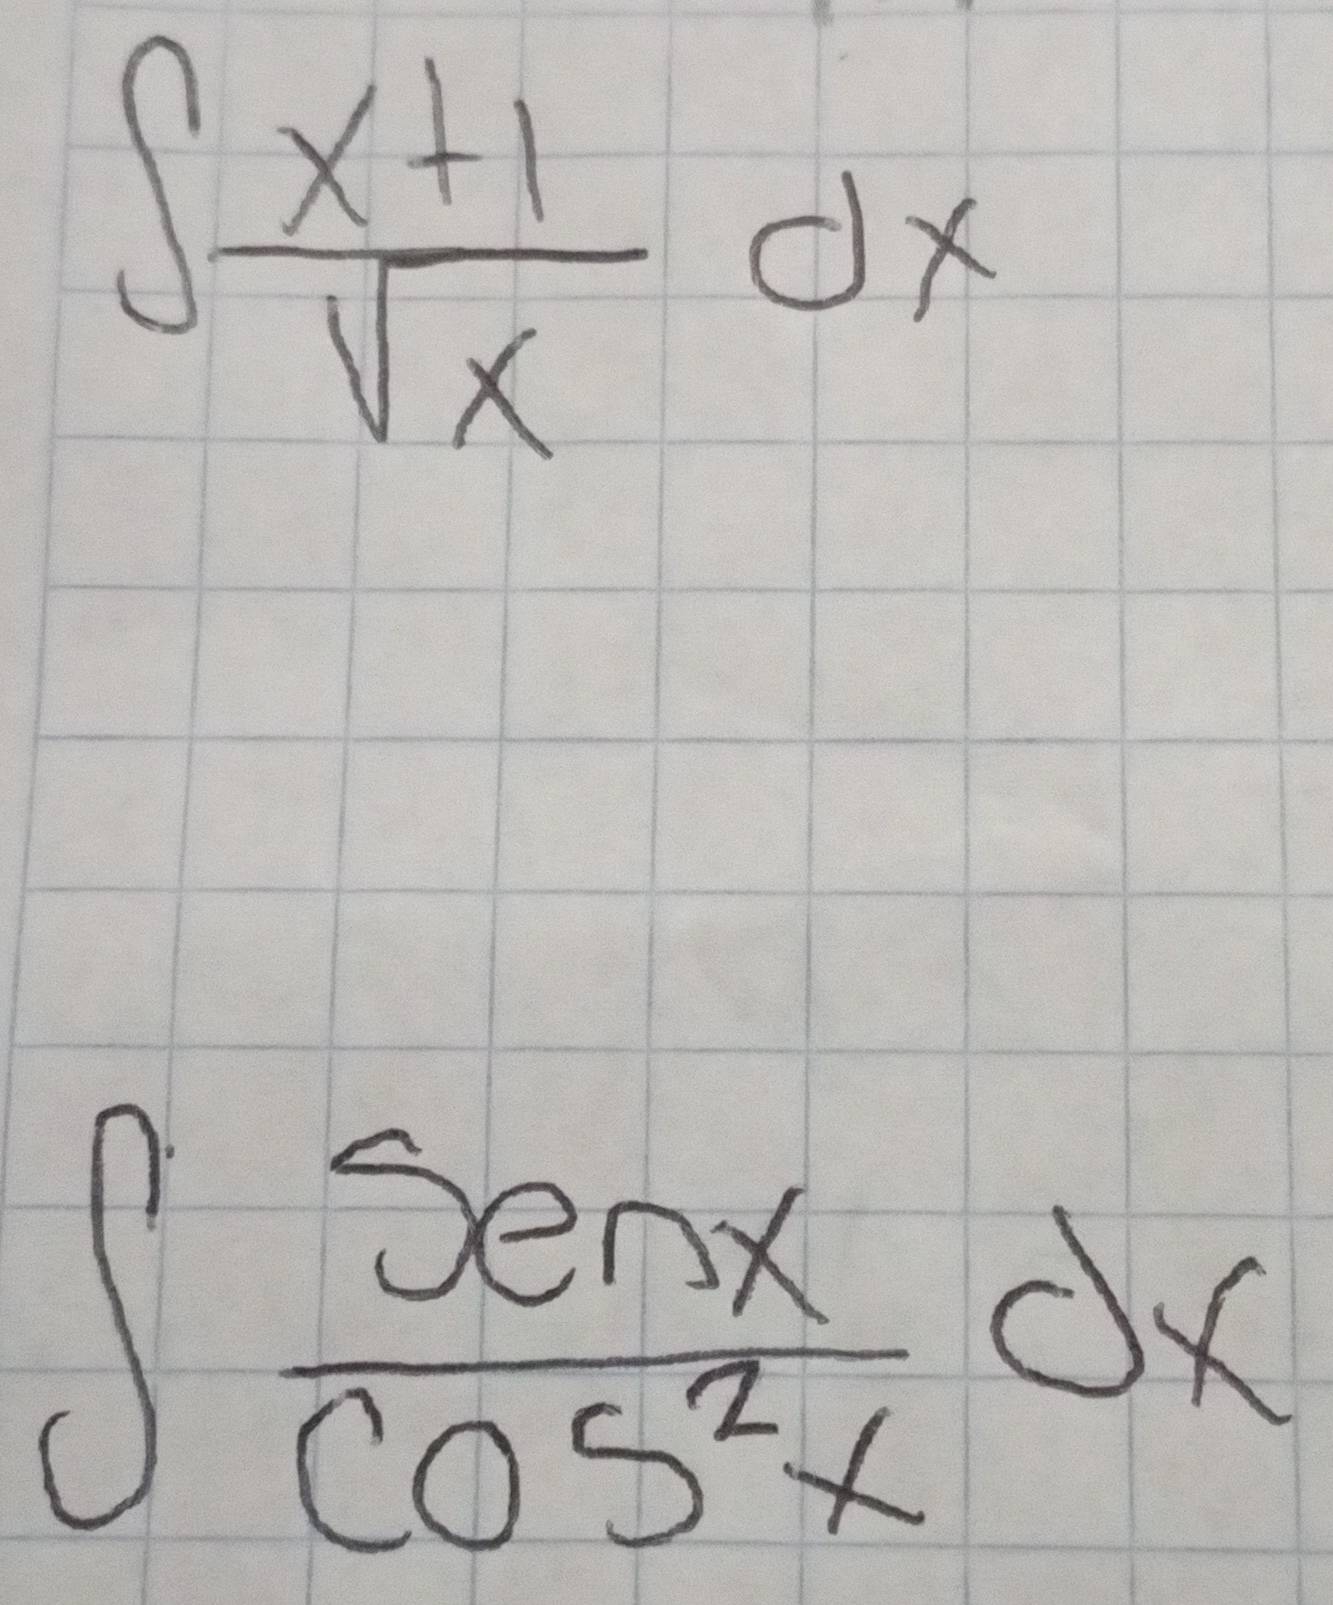 ∫ x+1 / √x dx
∫ senx / cos²x dx